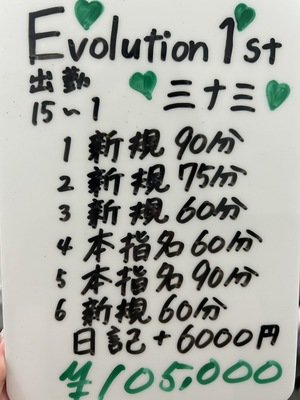 Evolution 1st
出勤
15～1
三十三
1 新規90分
2 新規75分
3 新規60分
4 本指名60分
5 本指名90分
6 新規60分
日記+6000円
¥105,000